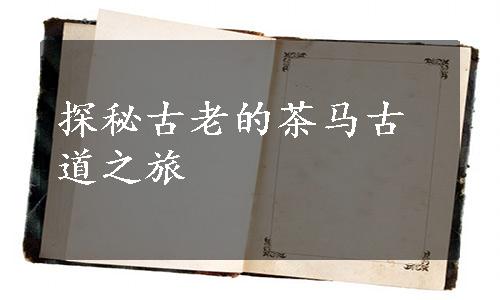 探秘古老的茶马古
道之旅